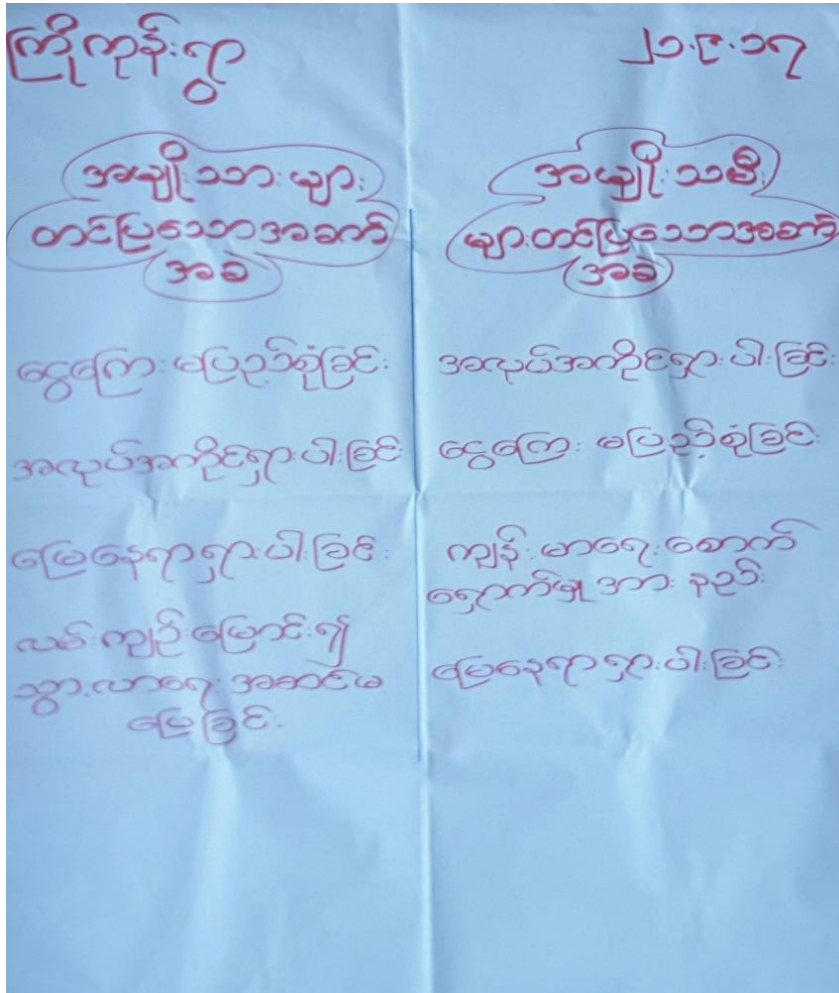 ကြိုကုန်းရွာ
၂၁.၉.၁၇
အမျိုးသားများ
တင်ပြသောအခက်
အခဲ
ငွေကြေးမပြည့်စုံခြင်း
အလုပ်အကိုင်ရှားပါးခြင်း
မြေနေရာရှားပါးခြင်း
လမ်းကျဉ်းမြောင်း၍
သွားလာရေးအဆင်မ
ပြေခြင်း
အမျိုးသမီး
များတင်ပြသောအခက်
အခဲ
အလုပ်အကိုင်ရှားပါးခြင်း
ငွေကြေးမပြည့်စုံခြင်း
ကျန်းမာရေးစောက်
ရှောက်မှုအားနည်း
မြေနေရာရှားပါးခြင်း